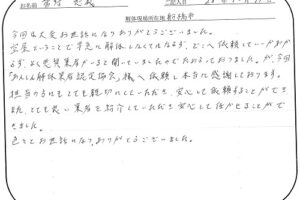 お名前
記入日
解体現場所在地 船橋市
今回は大変お世話になりありがとうございました。
空家ということで早急に解体しなくてはならず、どこへ依頼していいかわか
らず、又悪質業者がいると聞いていましたので
「あんしん解体業者認定協会」様へ依頼し本当に感謝しております。
担当の方にもとても親切にしていただき、安心して依頼することができ
また、とても良い業者を紹介していただき安心して任せることがで
きました。
色々とお世話になり、ありがとうございました。